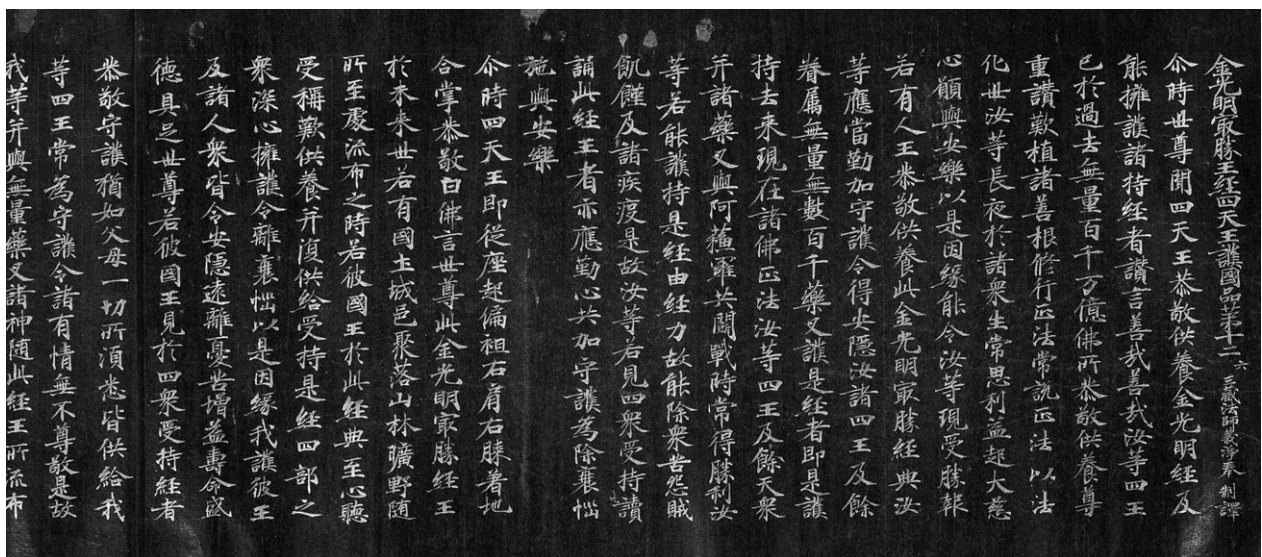 金光明㝡勝王經四天王護國品第十二 六 三藏法師義淨奉 制譯
尒時世尊聞四天王恭敬供養金光明經及
能擁護諸持經者讚言善哉善哉汝等四王
已於過去無量百千万億佛所恭敬供養尊
重讚歎植諸善根修行正法常說正法以法
化世汝等長夜於諸衆生常思利益起大慈
心願與安樂以是因緣能令汝等現受勝報
若有人王恭敬供養此金光明㝡勝經典汝
等應當勤加守護令得安隱汝諸四王及餘
眷属無量無數百千藥叉護是經者即是護
持去来現在諸佛正法汝等四王及餘天衆
并諸藥叉與阿蘓羅共鬪戰時常得勝利汝
等若能護持是經由經力故能除衆苦怨賊
飢饉及諸疾疫是故汝等若見四衆受持讀
誦此經王者亦應勤心共加守護為除衰惱
施與安樂
尒時四天王即從座起偏袒右肩右膝著地
合掌恭敬白佛言世尊此金光明㝡勝經王
於未来世若有國土城邑聚落山林曠野随
所至處流布之時若彼國王於此經典至心聽
受稱歎供養并復供給受持是經四部之
衆深心擁護令離衰惱以是因緣我護彼王
及諸人衆皆令安隱遠離憂苦增益壽命威
德具足世尊若彼國王見於四衆受持經者
恭敬守護猶如父母一切所湏悉皆供給我
等四王常為守護令諸有情無不尊敬是故
我等并與無量藥叉諸神随此經王所流布